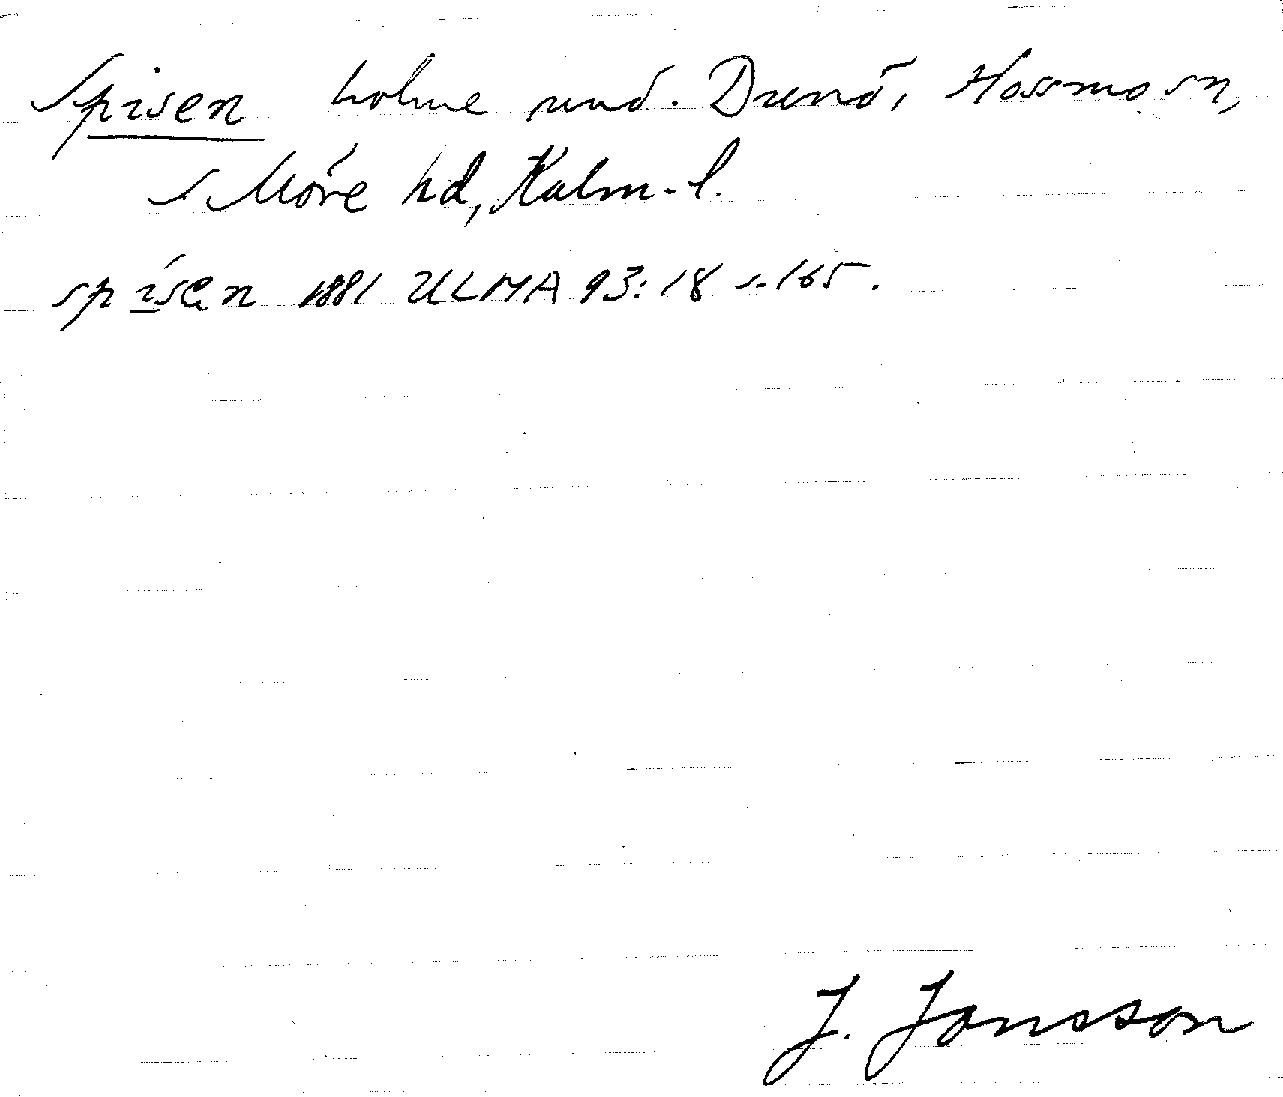 Spisen holme und. Dunö, Hossmo sn,
s Möre hd, Kalm. l.
spisen 1881 ULMA 93:18 s. 165.
J. Jonsson